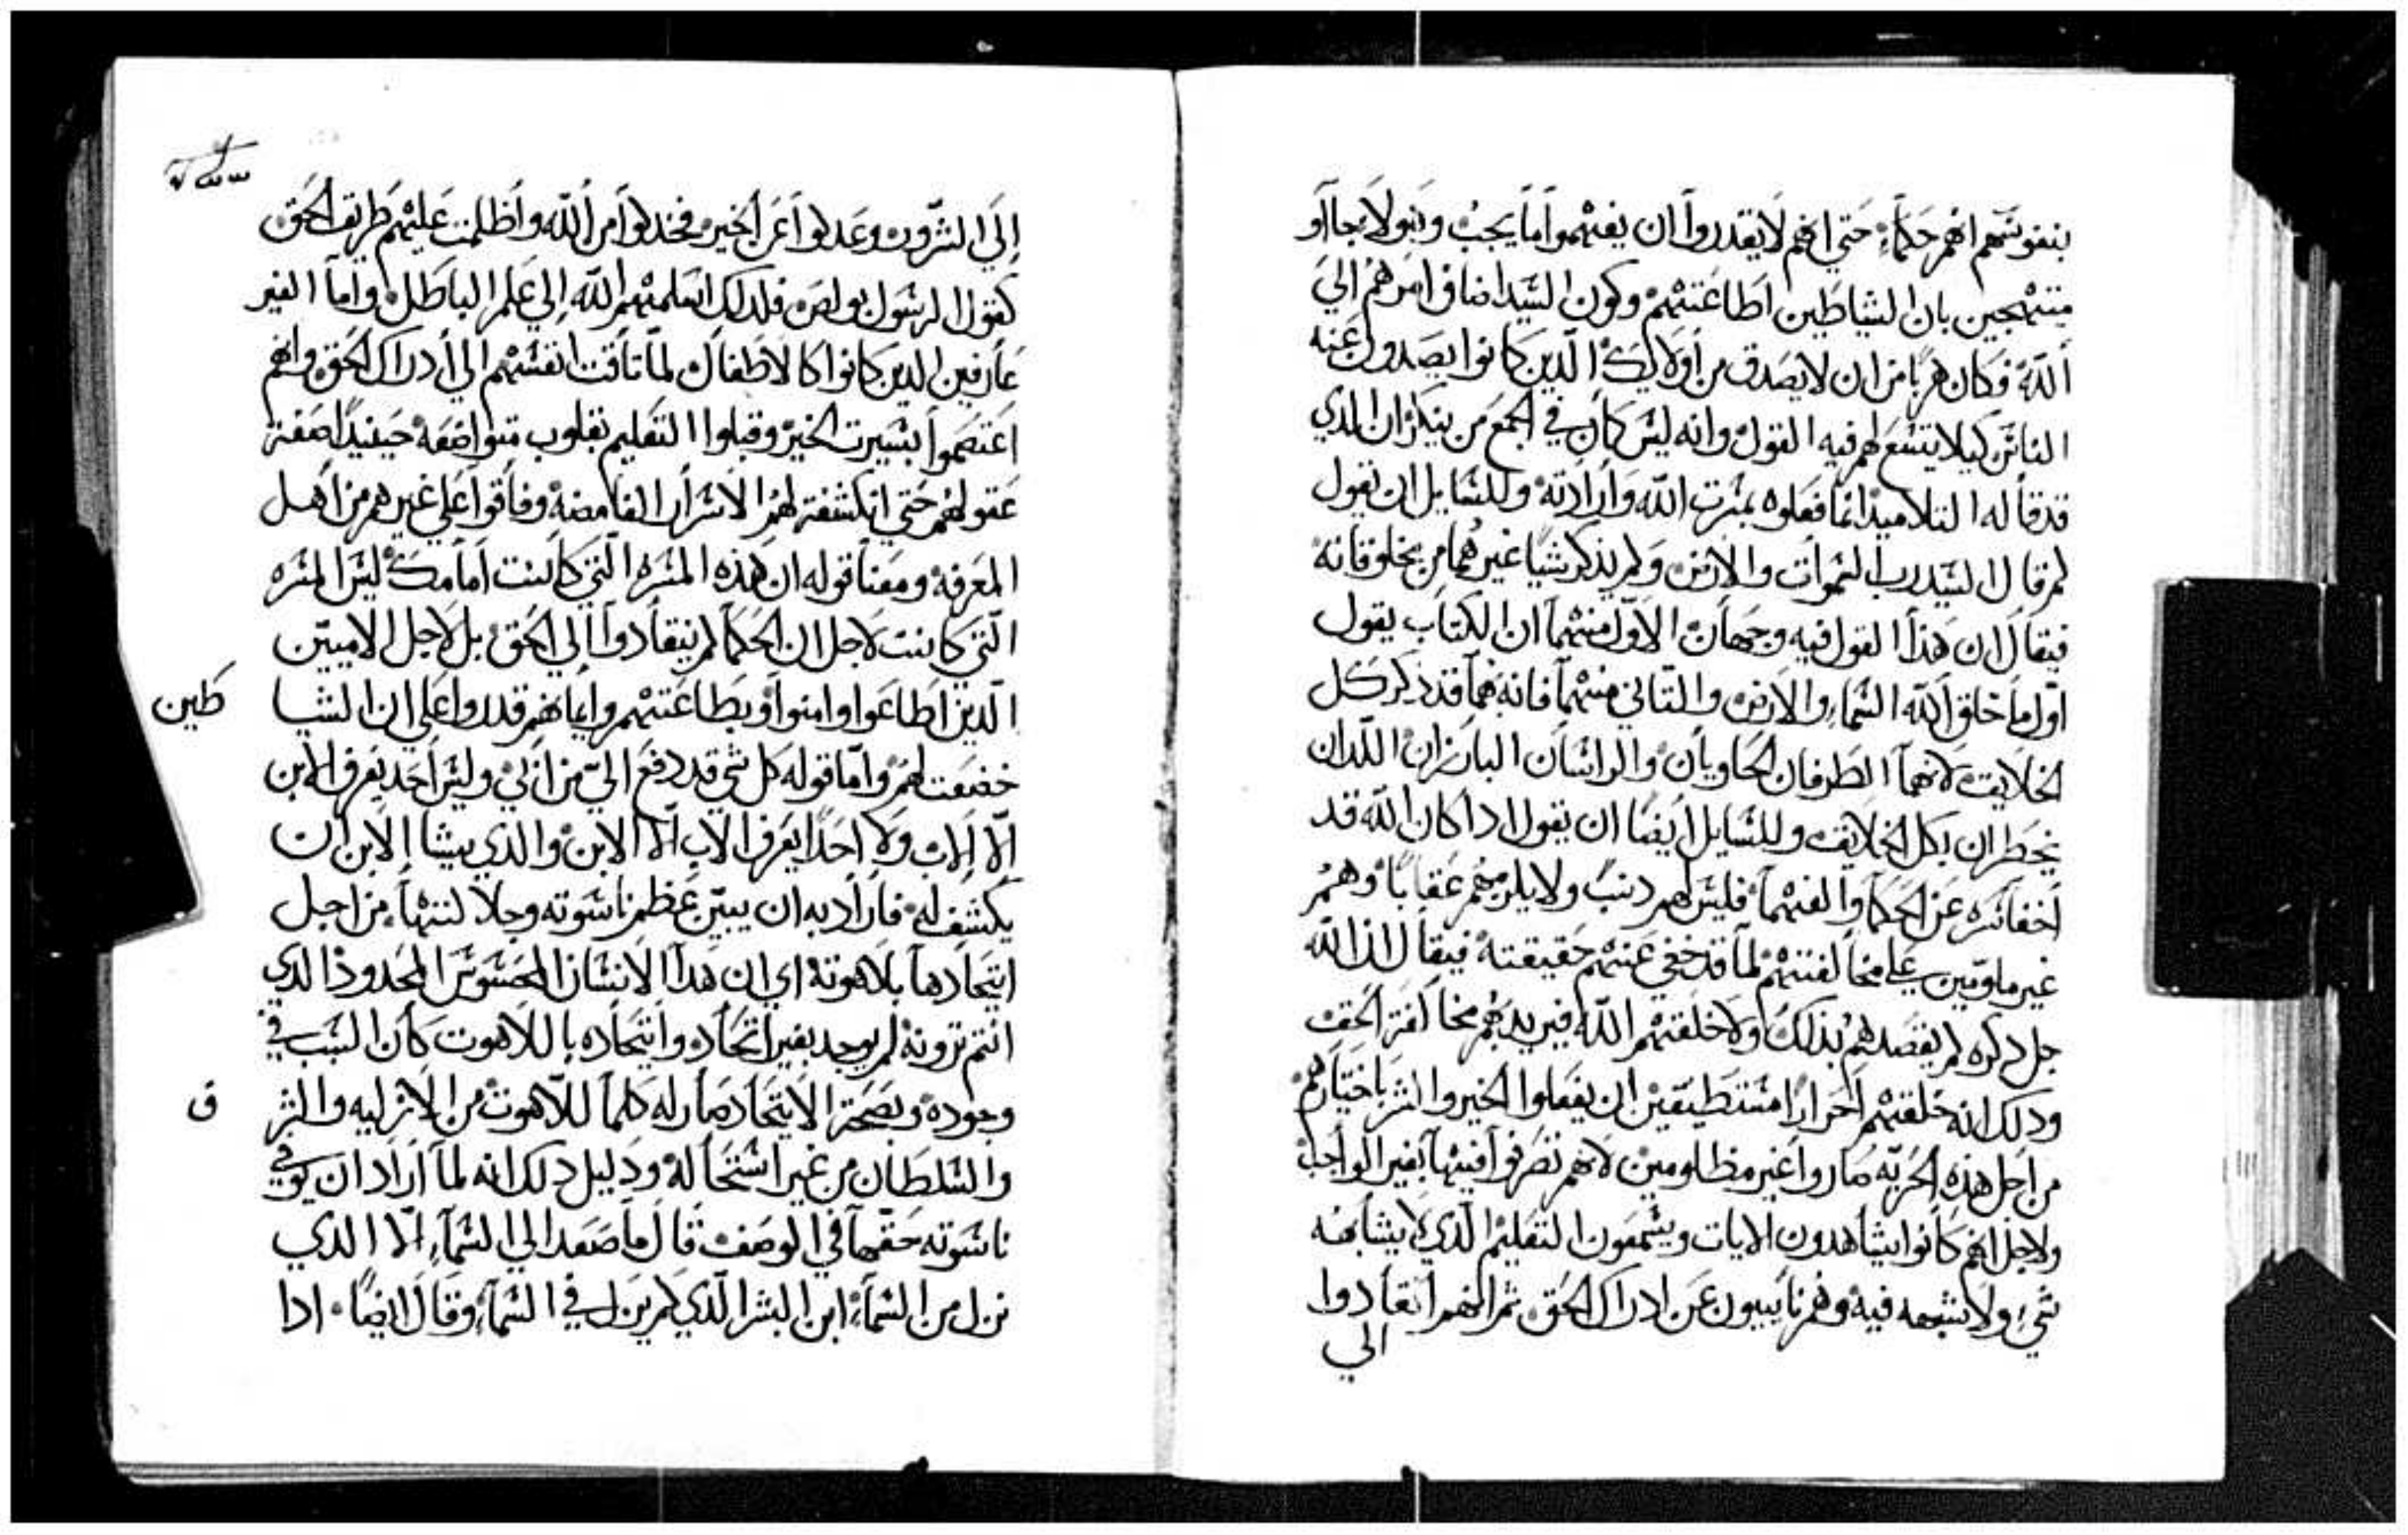 بنفوسهم انهم حكماء حتي انهم لا يقدروا ان يفهموا ما يجب
مبتهجين بان الشياطين اطاعتهم وكون السيد اضاف امرهم الي
الله فكان هربا من ان لا يصدق من اولايك الدين كانوا يصدون عنه
الناس كيلا يتسع لهم فيه القول وانه ليس كان في الجمع من ينكر ان الدي
قد قاله التلاميد انما فعلوه بمسرت الله وارادته وللسايل ان يقول
لم قال السيد رب السموات والارض ولم يذكر شيا غيرهما من مخلوقاته
فيقال ان هدا القول فيه وجهان الاول منهما ان الكتاب يقول
اول ما خلق الله السماء والارض والتاني منهما فانه بهما قد ذكر كل
الخلايق لانهما الطرفان الحاويان والراسان البارزان اللدان
يحطران بكل الخلايق وللسايل ايضا ان يقول ادا كان الله قد
اخفا سره عن الحكما والفهما فليس لهم دنب ولا يلزمهم عقابا وهم
غير ملومين علي مخالفتهم لما قد خفي عنهم حقيقته فيقال ان الله
جل دكره لم يقصدهم بذلك ولا خلقهم الله فيريد بهم مخالفة الحق
ودلك انه خلقهم احرارا مستطيقين ان يفعلوا الخير والشر باختيارهم
من اجل هذه الحريه صاروا غير مظلومين لانهم تصرفوا فيها بغير الواجب
ولاجل انهم كانوا يشاهدون الايات ويسمعون التعليم الدي لا يشابهه
شي ولا شبهه فيه وهم نايبون عن ادراك الحق ثم انهم انقادوا
الي
الي الشرور وعدلوا عن الخير فخدلوا من الله واظلمت عليهم طريق الحق
كقول الرسول بولص فلدلك اسلمهم الله الي علم الباطل واما الغير
عارفين الدين كانوا كالاطفال لما تاقت انفسهم الي ادراك الحق وانهم
اعتصموا بسيرت الخير وقبلوا التعليم بقلوب متواضعه حينيد اصفت
عقولهم حتي انكشفت لهم الاسرار الغامضه وفاقوا علي غيرهم من اهل
المعرفه ومعنا قوله ان هذه المسره التي كانت امامك ليس المسره
التي كانت لاجل ان الحكما لم ينقادوا الي الحق بل لاجل الاميين
الدين اطاعوا وامنوا وبطاعتهم وايمانهم قدروا علي ان الشيا طين
خضعت لهم واما قوله كل شي قد دفع الي من ابي وليس احد يعرف الابن
الا الاب ولا احدا يعرف الاب الا الابن والذي يشا الابن ان
يكشف له فاراد به ان يبين عظم ناسوته وجلالتها من اجل
اتحادها بلاهوته اي ان هدا الانسان المحسوس المحدود الدي
انتم ترونه لم يوجد بغير اتحاد واتحاده باللاهوت كان السبب في
وجوده وبصحة الاتحاد صار له كلما للاهوت من الازليه والشر ق
والسلطان من غير استحاله ودليل دلك انه لما اراد ان يوفي
ناسوته حقها في الوصف قال ما صعد الي السماء الا الدي
نزل من السماء ابن البشر الذي لم يزل في السماء وقال ايضا ادا